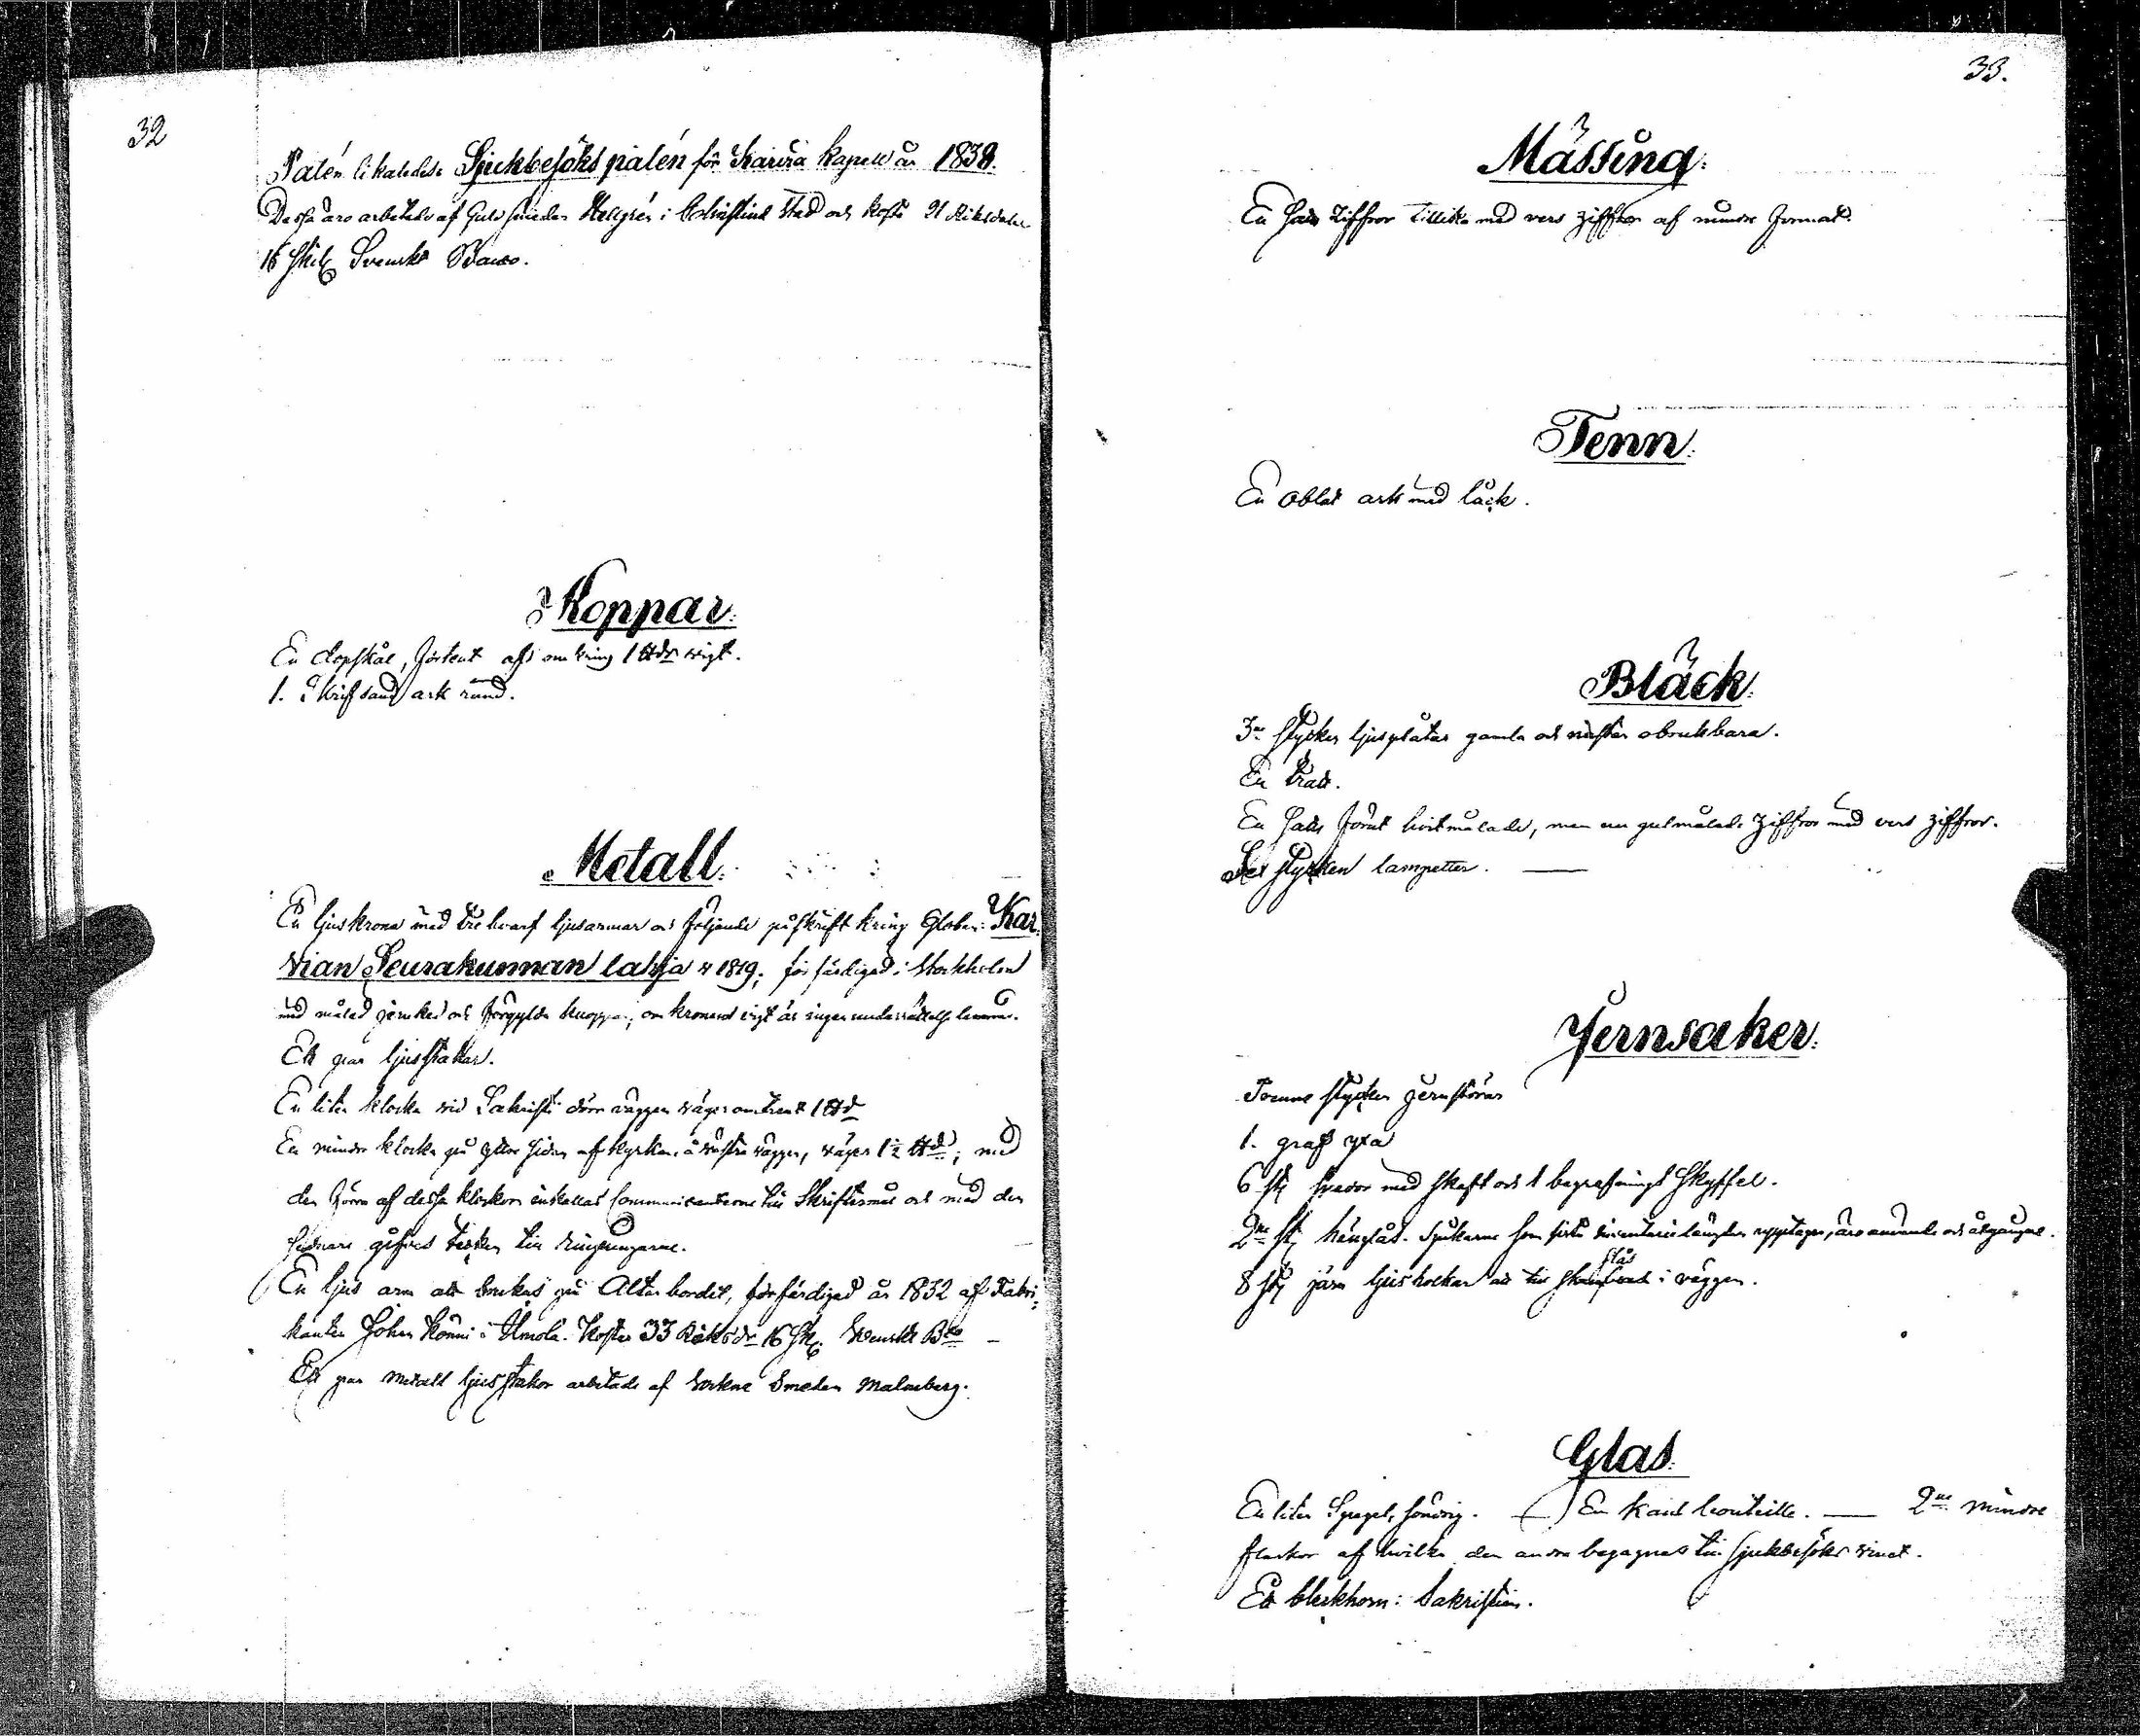 32
Patén likaledes Sjukbesöks patén för Karvia Kapell år 1838.
Dessa äro arbetade af Guldsmeden Hellgrén i Christinæ stad och kosta 21 Riksdaler
16 skill Svenskt Banco.
Koppar.
En dopskål, förtent af omkring 1 ℔dr vigt.
1. Skrifsand ask rund.
Metall.
En ljuskrona med tre hvarf ljusarmar och följande påskrift kring Globen: Kar:
vian Seurakunnan lahja v 1819; förfärdigad i Stockholm
med målad jernked och förgylda knoppar; om kronans vigt är ingen underrättelse lemnad.
Ett par ljusstakar.
En liten klocka vid Sakristi dörr väggen väger omtrent 1 ℔d
En mindre klocka på södre sidan af kyrkan å västra väggen, väger 1½ ℔d; med
den förra af dessa klockor inkallas Communicanterne till Skriftermål och med den
sednare gifves tecken till ringningarne.
En ljus arm att brukas på Altarbordet, förfärdigad år 1832 af Fabri:
kanten Johan Könni i Ilmola. Kostar 33 Riksdr 16 sk. Svenskt Bco
Ett par Metall ljusstakar arbetade af Sockne Smeden Malmberg.
33.
Mässing.
En sats Ziffror tillika med vers ziffror af mindre format.
Tenn.
En oblat ask med låck.
Bläck.
3ne stycken ljusplåtar gamla och nästan obrukbara.
En tratt.
En sats förut hvitmålade, men nu gulmålade Ziffror med vers ziffror.
Sex stycken lampetter.
Jernsaker.
Tvenne stycken jernstörar
1. graf yxa
6 st spador med skaft och 1 begrafnings skyffel.
2ne st hänglås. Spikarne som förra inventarii längden upptager, äro använde och åtgångne.
slås
8 st järn ljushockar att i väggen.
Glas.
En liten Spegel, söndrig. En Kant bouteille. 2ne mindre
flaskor af hvilka den andra begagnas till sjukbesöks vinet.
Ett bleckhorn i Sakristian.